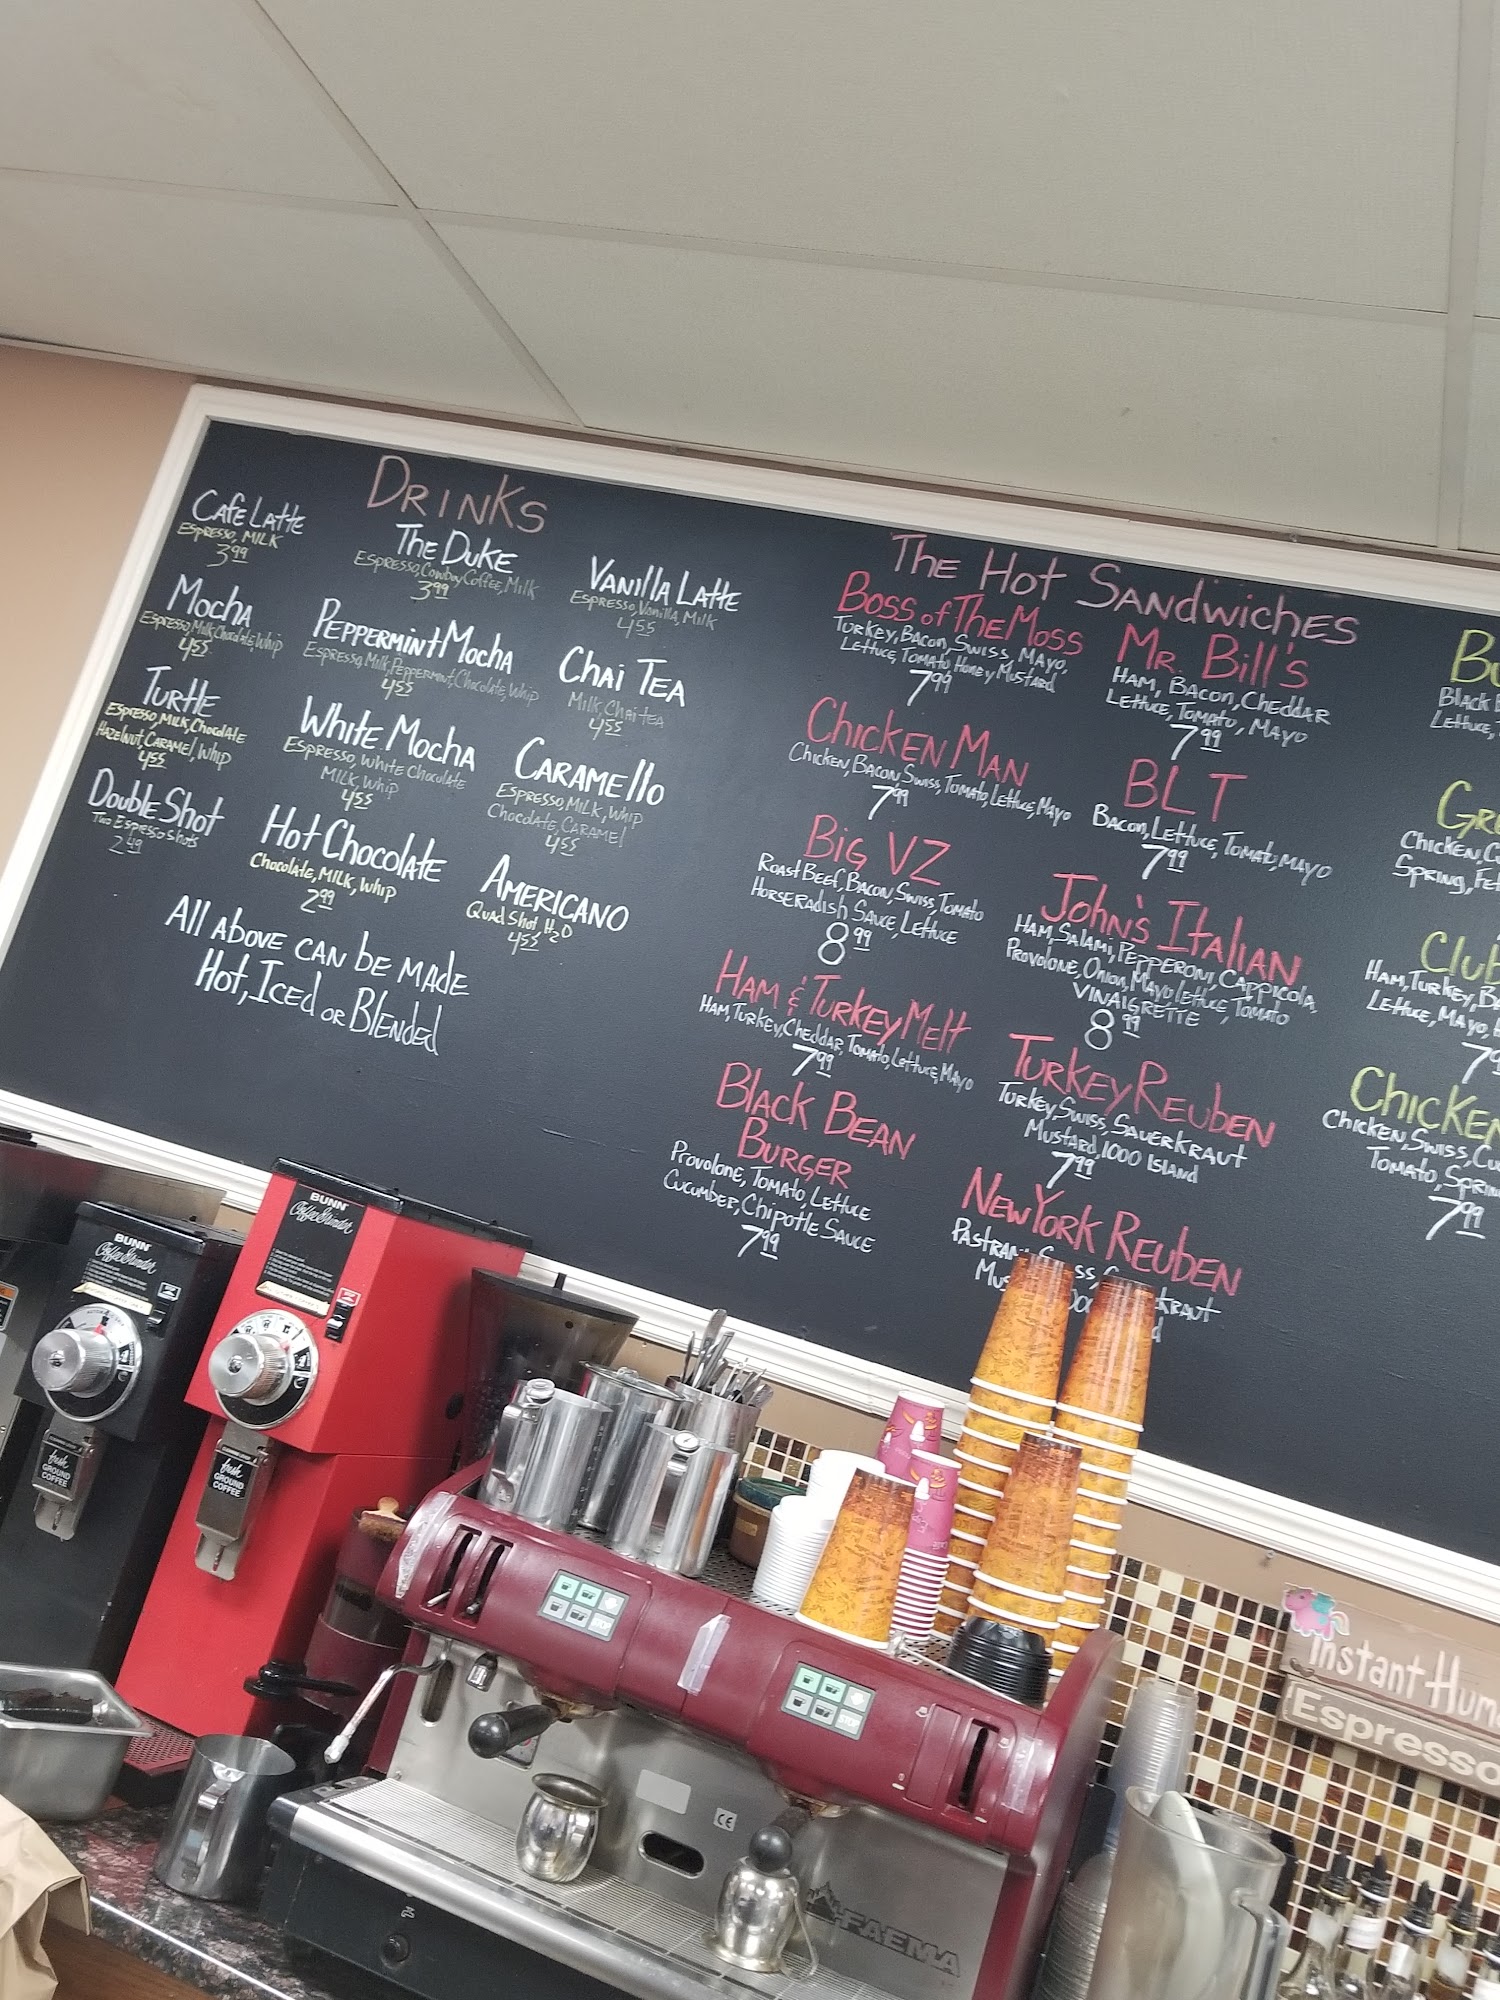 DRINKS
Cafe Latte
Espresso, Milk
3.99
Mocha
Espresso, Milk, Chocolate, Whip
4.55
Turtle
Espresso, Milk, Chocolate
Hazelnut, Caramel, Whip
4.55
Double Shot
Two Espresso Shots
2.49
The Duke
Espresso, Cowboy Coffee, Milk
3.99
Peppermint Mocha
Espresso, Milk, Peppermint, Chocolate, Whip
4.55
White Mocha
Espresso, White Chocolate
Milk, Whip
4.55
Hot Chocolate
Chocolate, Milk, Whip
2.99
Vanilla Latte
Espresso, Vanilla, Milk
4.55
Chai Tea
Milk, Chai tea
4.55
Caramello
Espresso, Milk, Whip
Chocolate, Caramel
4.55
Americano
Quad Shot, H2O
4.55
All above can be made
Hot, Iced or Blended
The Hot Sandwiches
Boss of The Moss
Turkey, Bacon, Swiss, Mayo,
Lettuce, Tomato, Honey Mustard
7.99
Chicken Man
Chicken, Bacon, Swiss, Tomato, Lettuce, Mayo
7.99
Big VZ
Roast Beef, Bacon, Swiss, Tomato
Horseradish Sauce, Lettuce
8.99
Ham & Turkey Melt
Ham, Turkey, Cheddar, Tomato, Lettuce, Mayo
7.99
Black Bean
Burger
Provolone, Tomato, Lettuce
Cucumber, Chipotle Sauce
7.99
Mr. Bill's
Ham, Bacon, Cheddar
Lettuce, Tomato, Mayo
7.99
BLT
Bacon, Lettuce, Tomato, Mayo
7.99
John's Italian
Ham, Salami, Pepperoni, Cappicola,
Provolone, Onion, Mayo, Lettuce, Tomato
Vinaigrette
8.99
Turkey Reuben
Turkey, Swiss, Sauerkraut
Mustard, 1000 Island
7.99
New York Reuben
Black
Lettuce,
Chicken,
Spring,
Club
Ham, Turkey,
Lettuce, Mayo,
Chicken
Chicken, Swiss,
Tomato,
7.99
BUNN
Coffee Grinder
fresh
GROUND
COFFEE
BUNN
Coffee Grinder
fresh
GROUND
COFFEE
STOP
STOP
CE
FAEMA
Instant
Espresso